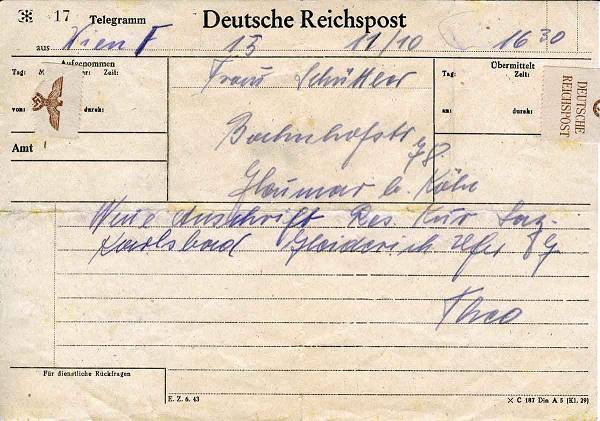 17 Telegramm Deutsche Reichspost
aus Wien F 15 11/10 16 30
Aufgenommen
Tag: Zeit:
von: durch:
Amt
Frau Schüttler
Bachnhofstr 78
b. Köln
Übermittelt
Tag: Zeit:
an: durch:
DEUTSCHE
REICHSPOST
Neue Anschrift Res. Kur Laz.
Karlsbad
Theo
Für dienstliche Rückfragen
E. Z. 6. 43
C 187 Din A 5 (Kl. 29)